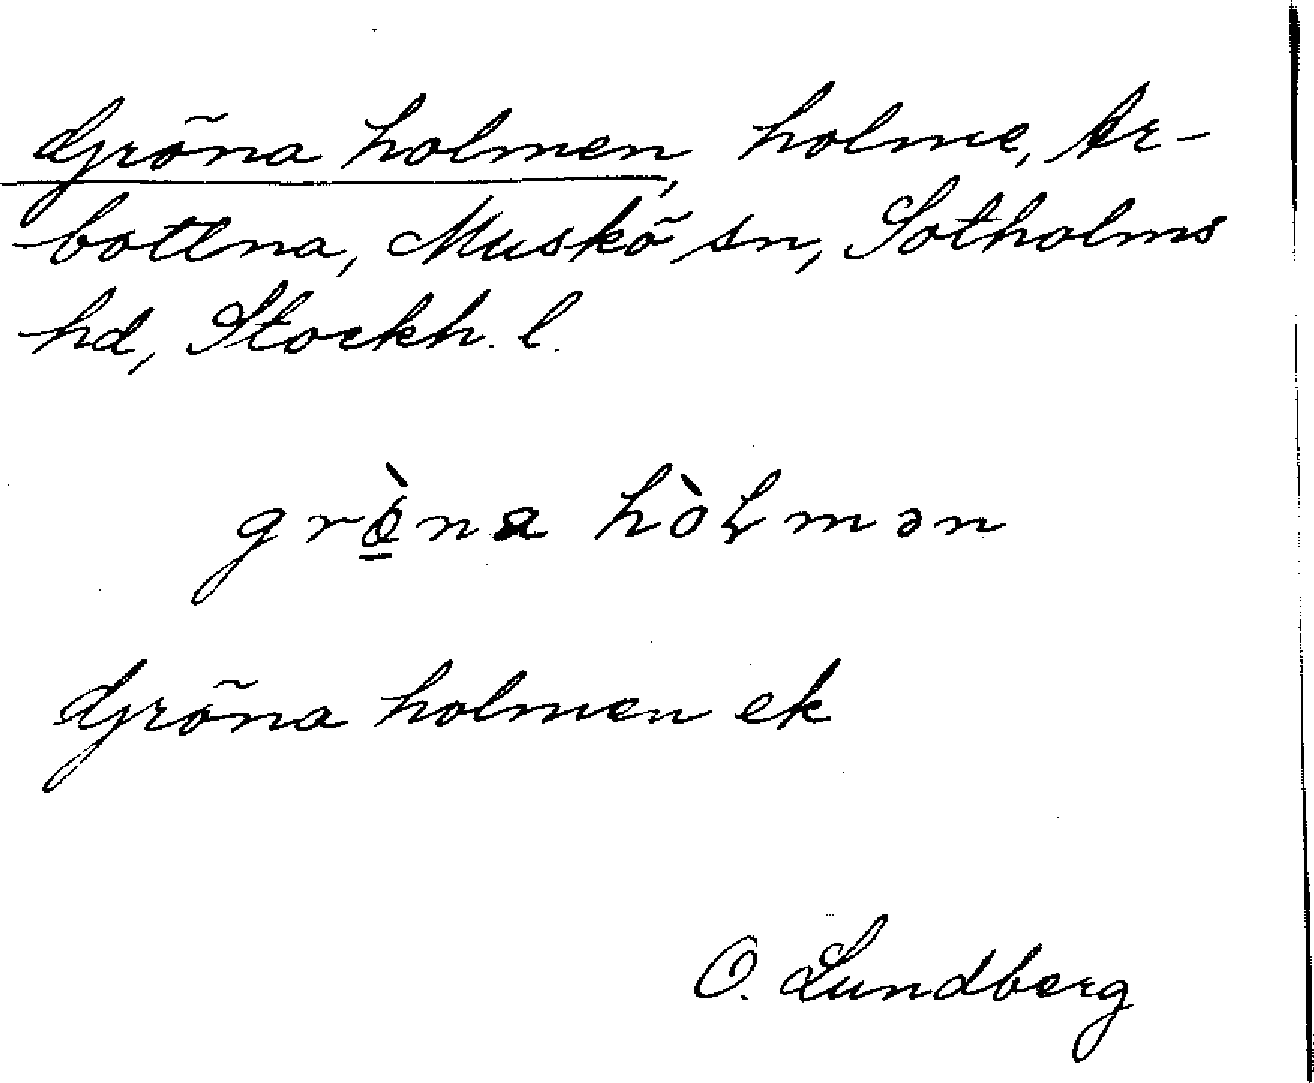 Gröna holmen, holme, Ar-
bottna, Muskö sn, Sotholms
hd, Stockh. l.
grø̲̀na hòɫmən
Gröna holmen ek
O. Lundberg